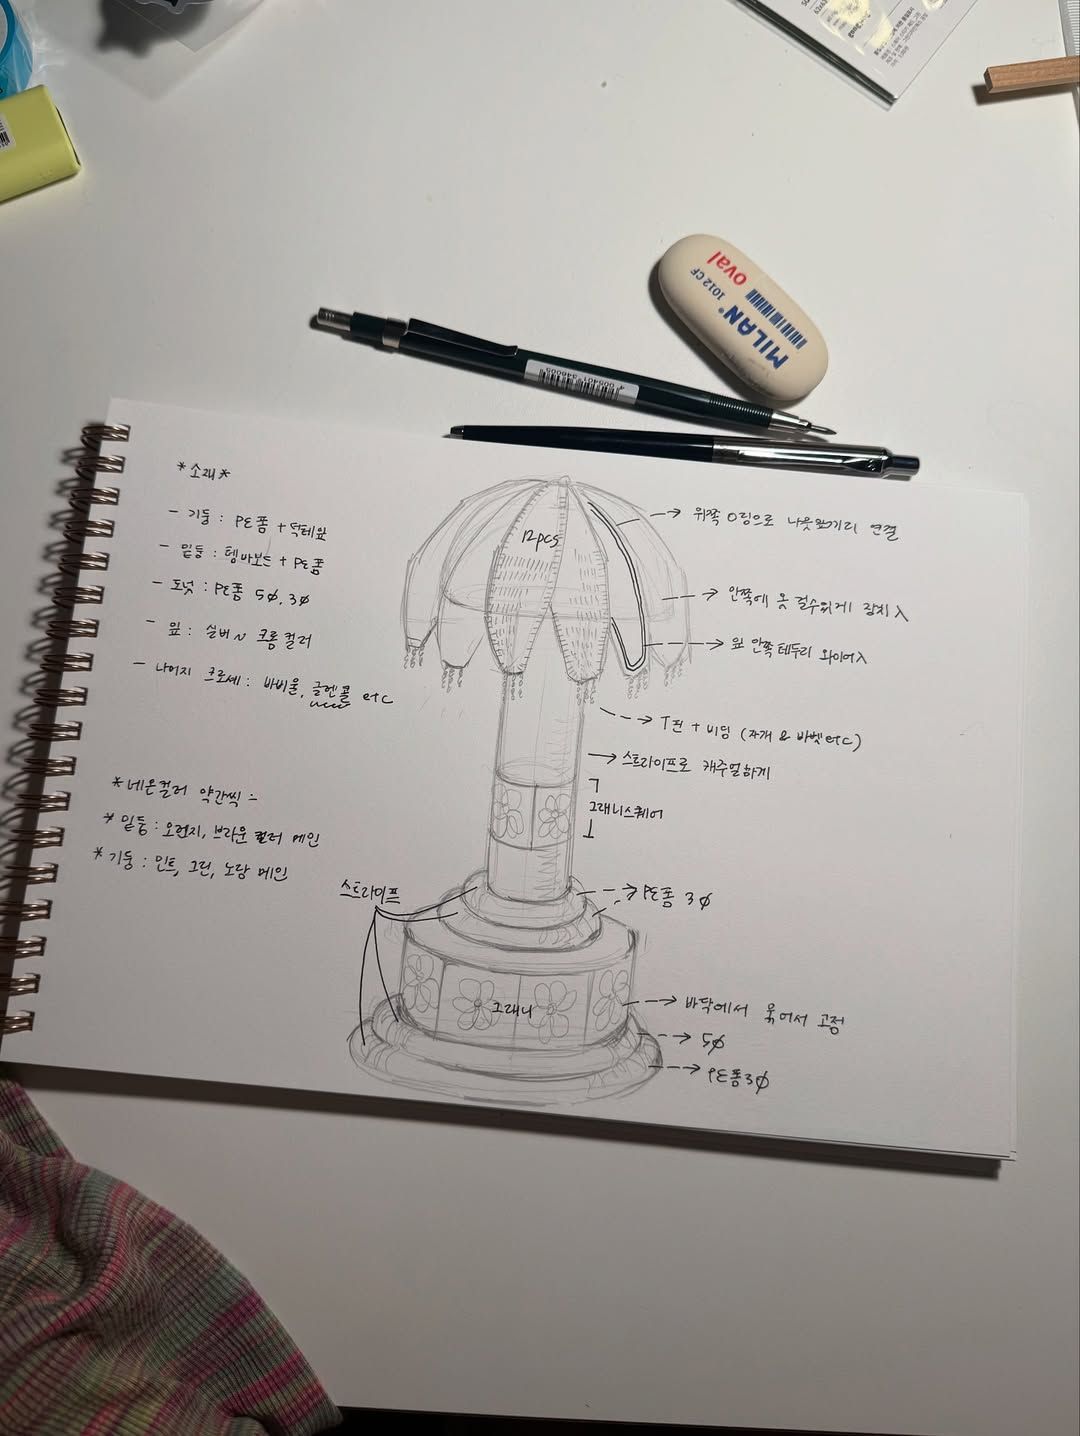 MILAN
oval
1012 CF
*소재*
- 기둥 : PE폼 + 덕테잎
- 밑둥 : 템바보드 + PE폼
- 도넛 : PE폼 5Ø, 3Ø
- 잎 : 실버 ~ 크롬 컬러
- 나머지 크로셰 : 바비울, 글렌콜 etc
*네온컬러 약간씩
* 밑둥 : 오렌지, 브라운 컬러 메인
* 기둥 : 민트, 그린, 노랑 메인
12pcs
위쪽 O링으로 나뭇잎끼리 연결
안쪽에 옷 걸수있게 장치
잎 안쪽 테두리 와이어
T핀 + 비딩 (자개 & etc)
스트라이프로 캐주얼하게
그래니스퀘어
스트라이프
PE폼 3Ø
그래니
바닥에서 묶어서 고정
5Ø
PE폼 3Ø